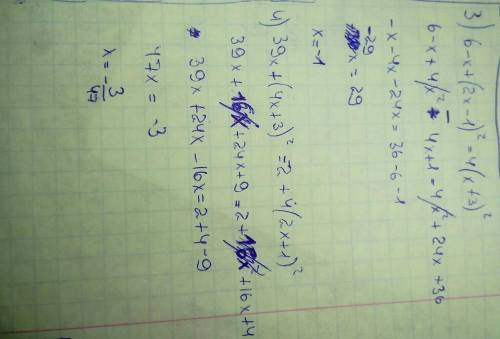 3) 6-x+(2x-1)²=4(x+3)²
6-x+4x²-4x+1=4x²+24x+36
-x-4x-24x=36-6-1
-29x=29
x=-1
4) 39x+(4x+3)²=2+4(2x+1)²
39x+16x²+24x+9=2+16x²+16x+4
39x+24x-16x=2+4-9
47x=-3
x=-3/47